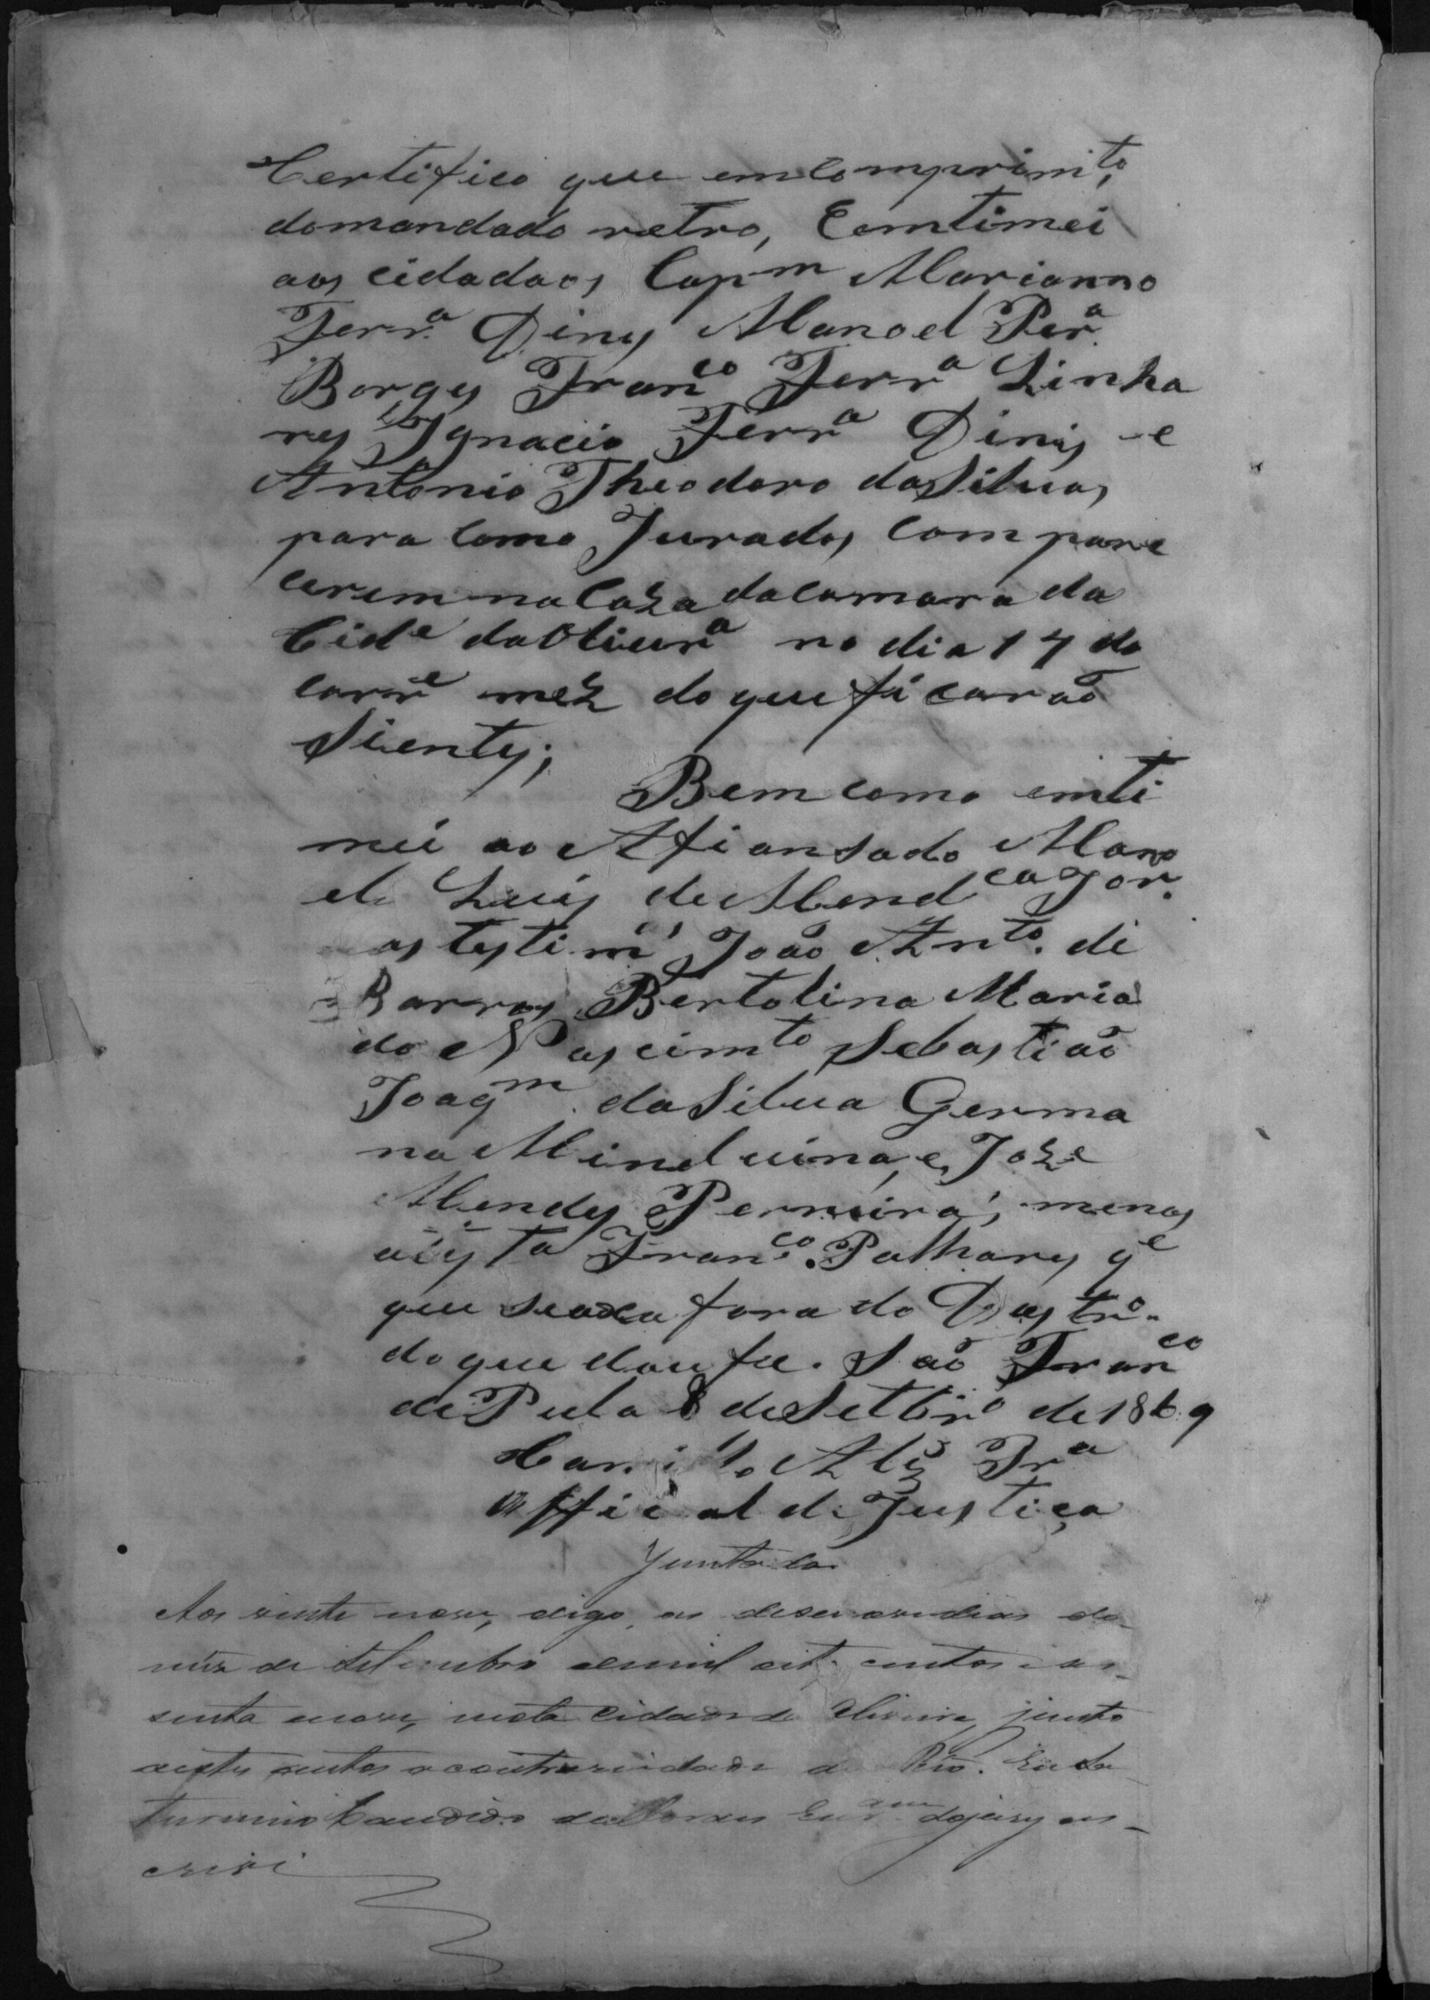 Certifico que em comprim.to
do mandado retro, Emtimei
aos cidadaos Cap.m Marianno
Ferr.a Diniz Manoel Per.a
Borges Fran.co Ferr.a Linha
res Ignacio Ferr.a Dinis e
Antonio Theodoro da Silva,
para como Jurados compare
cerem na Caza da Camara da
Cid.e da Oliveir.a no dia 17 do
corr.e mez do que ficarão
Sientes;
Bem como emti
mei ao Afiansado Mano
el Luis de Mend.ca Jor.
as testim.as João Ant.o de
Barros Bertolina Maria
do Nascimt.o Sebastião
Joaq.m da Silva Germa
na Minduina, e Joze
Mendes Perreira; menos
a Fran.co Palhares q.e
fora do Destr.o
do que dou fe. São Fran.co
de Paula 8 de Settbr.o de 1869
Alz Fr.a
Official de Justiça
Juntada
Aos vinte nove, digo, as desenove dias do
mez de Setembro de mil oito centos e ses-
senta e nove, nesta Cidade de Oliveira, junto
a estes autos a contrariedade do Réo. Eu
Candido de
crivi